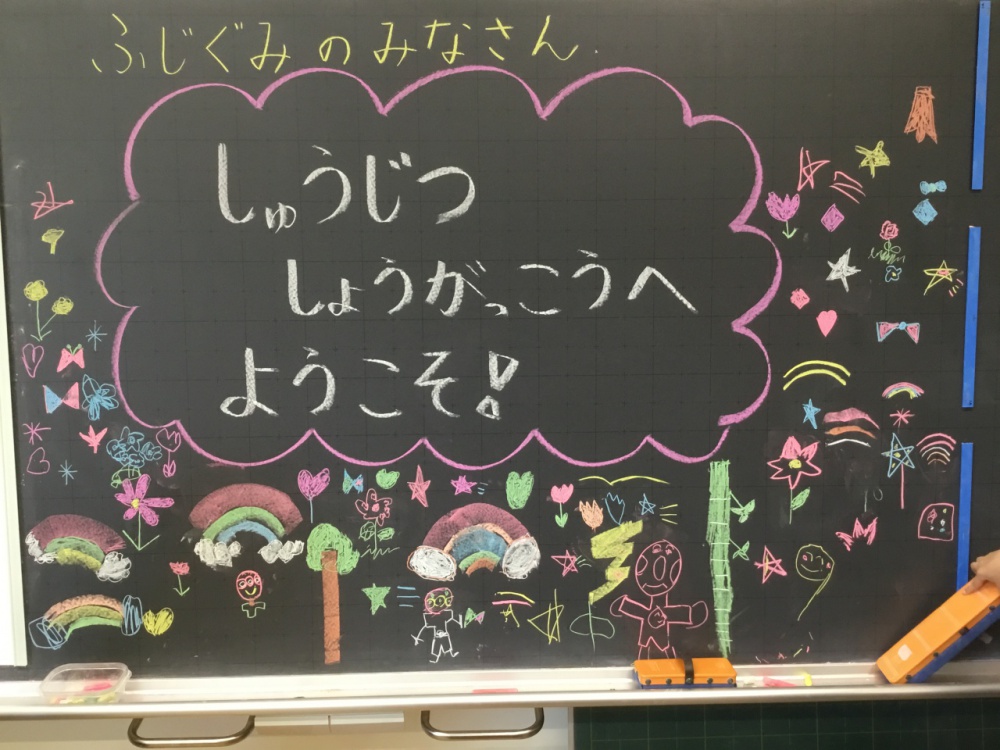 ふじぐみのみなさん
しゅうじつ
しょうがっこうへ
ようこそ!